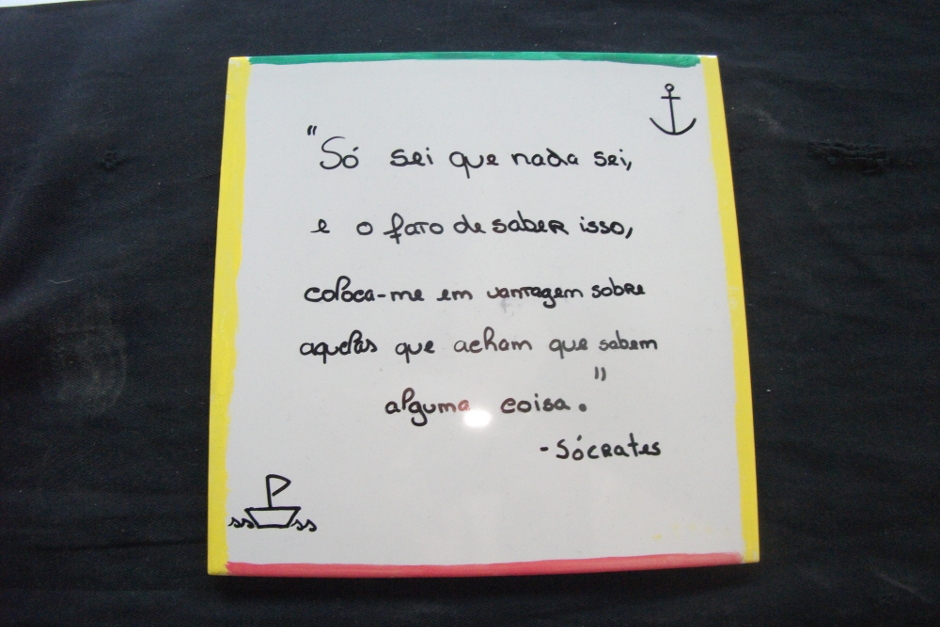 "Só sei que nada sei,
e o fato de saber isso,
coloca-me em vantagem sobre
aqueles que acham que sabem
alguma coisa."
-Sócrates